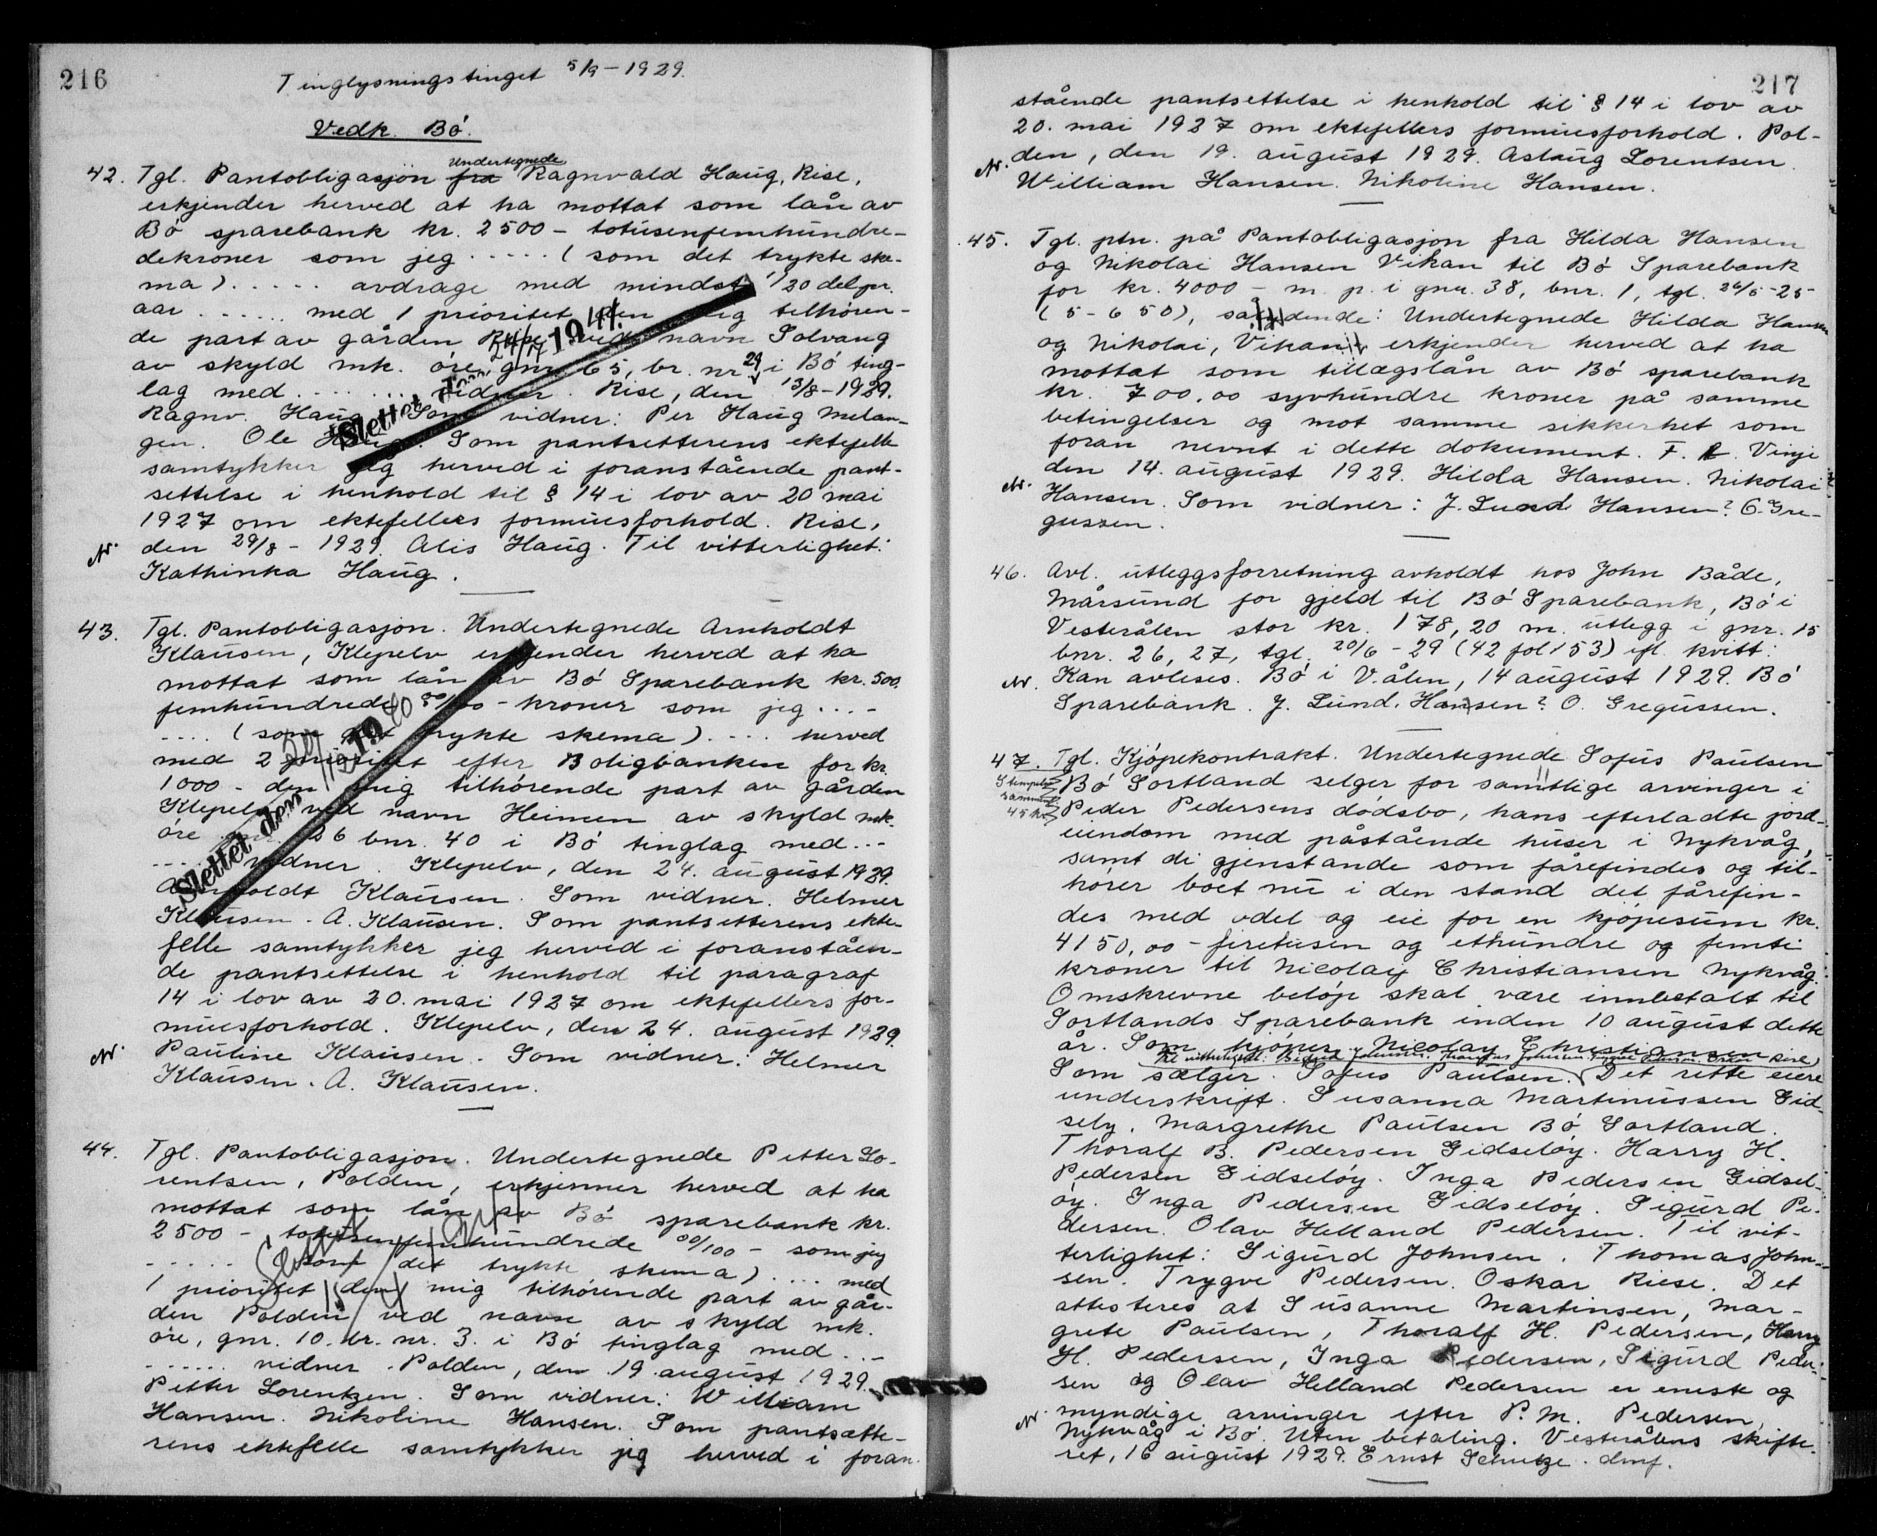 216
Tinglysningstinget 5/9 - 1929.
Vedk. Bö.
42. Tgl. Pantobligasjon fra Undertegnede Ragnvald Haug, Rise,
erkjender herved at ha mottat som lån av
Bö sparebank kr. 2500 - totusenfemhundre-
dekroner som jeg ..... (som det trykte ske-
ma) ..... avdrage med mindst 1/20 del pr.
aar ...... med 1 prioritet den mig tilhören-
de part av gården Rise ved navn Solvang
av skyld mk. öre, gnr. 65, br. nr. 29, i Bö ting-
lag med ....... vidner. Rise, den 13/8 - 1929.
Ragnv. Haug. Som vidner: Per Haug Melan-
gen. Ole Haug. Som pantsetterens ektefelle
samtykker jeg herved i foranstående pant-
settelse i henhold til § 14 i lov av 20 mai
1927 om ektefellers formuesforhold. Rise,
den 29/8 - 1929. Alis Haug. Til vitterlighet:
Kathinka Haug.
Slettet den 24/4 1941.
43. Tgl. Pantobligasjon. Undertegnede Arnholdt
Klausen, Klepelv erkjender herved at ha
mottat som lån av Bö Sparebank kr. 500.
femhundrede 00/00 - kroner som jeg ....
.... (som det trykte skema) .... herved
med 2 prioritet efter Boligbanken for kr.
1000 - den mig tilhörende part av gården
Klepelv ved navn Heimen av skyld mk.
öre gnr. 26 bnr. 40 i Bö tinglag med ...
.... vidner. Klepelv, den 24. august 1929.
Arnholdt Klausen. Som vidner. Helmer
Klausen. A. Klausen. Som pantsetterens ekte-
felle samtykker jeg herved i foranståen-
de pantsettelse i henhold til paragraf
14 i lov av 20. mai 1927 om ektefellers for-
muesforhold. Klepelv, den 24. august 1929.
Pauline Klausen. Som vidner: Helmer
Klausen. A. Klausen.
Slettet den 1940
44. Tgl. Pantobligasjon. Undertegnede Petter Lo-
rentsen, Polden, erkjenner herved at ha
mottat som lån av Bö sparebank kr.
2500 - totusenfemhundrede 00/100 - som jeg
...... (som det trykte skema) .... med
1 prioritet den mig tilhörende part av går-
den Polden ved navn av skyld mk.
öre, gnr. 10. br. nr. 3. i Bö tinglag med ...
...... vidner. Polden, den 19. august 1929.
Petter Lorentzen. Som vidner: William
Hansen. Nikoline Hansen. Som pantsætte-
rens ektefelle samtykker jeg herved i foran-
Slettet
217
stående pantsettelse i henhold til § 14 i lov av
20. mai 1927 om ektefellers formuesforhold. Pol-
den, den 19. august 1929. Aslaug Lorentsen.
William Hansen. Nikoline Hansen.
45. Tgl. ptn. på Pantobligasjon fra Hilda Hansen
og Nikolai Hansen Vikan til Bö Sparebank
for kr. 4000 - m. p. i gnr. 38, bnr. 1, tgl. 26/5 - 25
(5 - 650), sålydende: Undertegnede Hilda Hansen
og Nikolai, Vikan, erkjender herved at ha
mottat som tillægslån av Bö sparebank
kr. 700,00 syvhundre kroner på samme
betingelser og mot samme sikkerhet som
foran nevnt i dette dokument. F. t. Vinje
den 14. august 1929. Hilda Hansen. Nikolai
Hansen. Som vidner: J. Lund Hansen? O. Gre-
gussen.
46. Avl. utleggsforretning avholdt hos John Både,
Mårsund for gjeld til Bö Sparebank, Bö i
Vesterålen stor kr. 178,20 m. utlegg i gnr. 15
bnr. 26, 27, tgl. 20/6 - 29 (42 fol 153) ifl. kvitt:
Kan avleses. Bö i V.ålen, 14 august 1929. Bö
Sparebank. J. Lund. Hansen? O. Gregussen.
47. Tgl. Kjöpekontrakt. Undertegnede Sofus Paulsen
Bö Sortland selger for samtlige arvinger i
Peder Pedersens dödsbo, hans efterladte jord-
eiendom med påstående huser i Nykvåg,
samt di gjenstande som fårefindes og til-
hörer boet nu i den stand det fårefin-
des med odel og eie for en kjöpesum kr.
4150,00 - firetusen og ethundre og femti
kroner til Nicolay Christiansen Nykvåg.
Omskrevne belöp skal være innbetalt til
Sortlands Sparebank inden 10 august dette
år. Som kjöper: Nicolay Christiansen
Som sælger. Sofus Paulsen. Det rette eiere
underskrift. Susanna Martinussen Gid-
sely. Margrethe Paulsen Bö Sortland.
Thoralf B. Pedersen Gidselöy. Harry H.
Pedersen Gidselöy. Inga Pedersen Gidsel-
öy. Inga Pedersen Gidselöy. Sigurd Pe-
dersen. Olav Helland Pedersen. Til vit-
terlighet: Sigurd Johnsen. Thomas John-
sen. Trygve Pedersen. Oskar Riese. Det
attesteres at Susanne Martinsen, Mar-
grete Paulsen, Thoralf H. Pedersen, Harry
H. Pedersen, Inga Pedersen, Sigurd Peder-
sen og Olav Helland Pedersen er eneste og
myndige arvinger efter P. M. Pedersen,
Nykvåg i Bö. Uten betaling. Vesterålens skifte-
ret, 16 august 1929. Ernst Schutze. dmf.